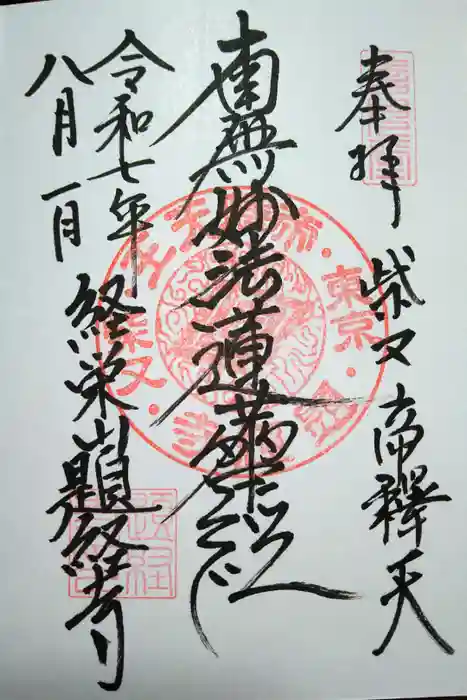 奉拝 柴又 帝釋天
南無妙法蓮華経
令和七年
八月一日
経栄山題経寺
東京
柴又